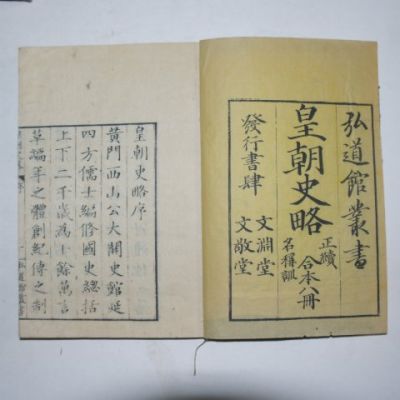 弘道館叢書
皇朝史略
正續
合本八冊
名稱訓
發行書肆
文淵堂
文敬堂
皇朝史略序
黃門西山公大開史館延
四方儒士編修國史總括
上下二千歲為
餘萬言
草編年之體創紀傳之制